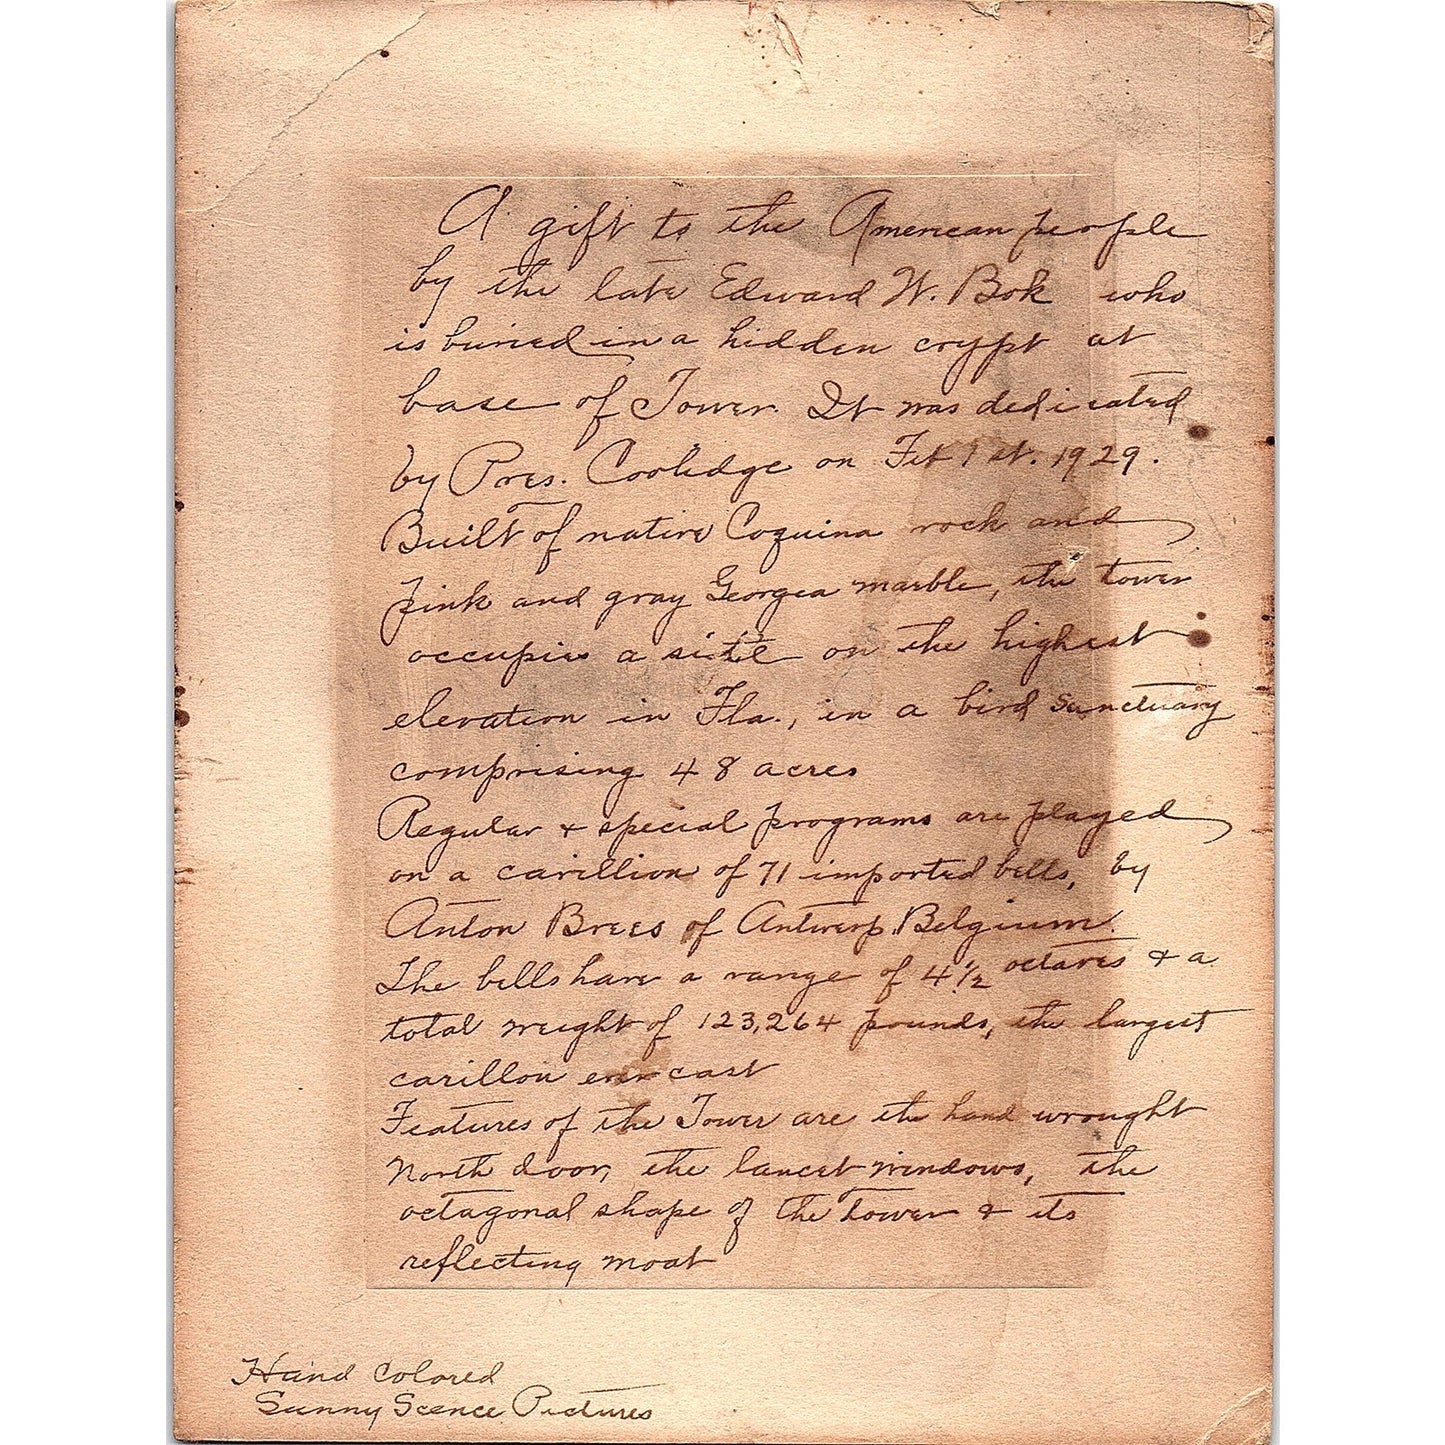 A gift to the American people
by the late Edward W. Bok who
is buried in a hidden crypt at
base of Tower. It was dedicated
by Pres. Coolidge on Feb 1st. 1929.
Built of native Coquina rock and
pink and gray Georgea marble, the tower
occupies a site on the highest
elevation in Fla., in a bird sanctuary
comprising 48 acres
Regular + special programs are played
on a carillion of 71 imported bells, by
Anton Brees of Antwerp, Belgium.
The bells have a range of 4 1/2 octaves + a
total weight of 123,264 pounds, the largest
carillon ever cast
Features of the Tower are the hand wrought
North door, the lancet windows, the
octagonal shape of the tower + its
reflecting moat
Hand Colored
Sunny Scence Pictures